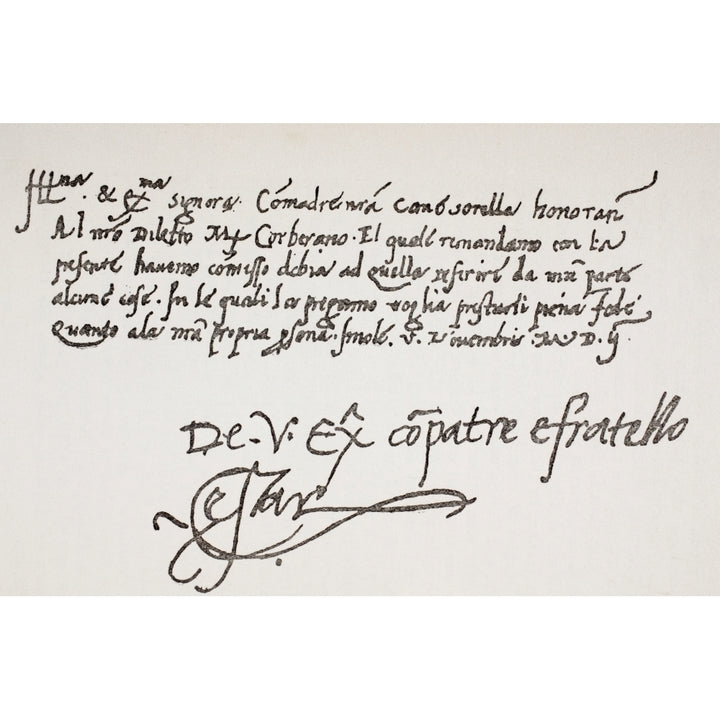 Ill.ma & Ex.ma Signora. Cōmadre nrā come sorella honorañ
Al nrō Diletto Mꝭ Corberano. El quale rimandamo con la
presente havemo cōmisso debia ad quella referire da nrā parte
alcune cose. In le quali la pregamo voglia prestarli piena Fede
Quanto ala nrā propria ꝑsona. Imole. V. Novembris. M.D.ij
De. V. Ex̂ cōpatre e fratello
Cesar